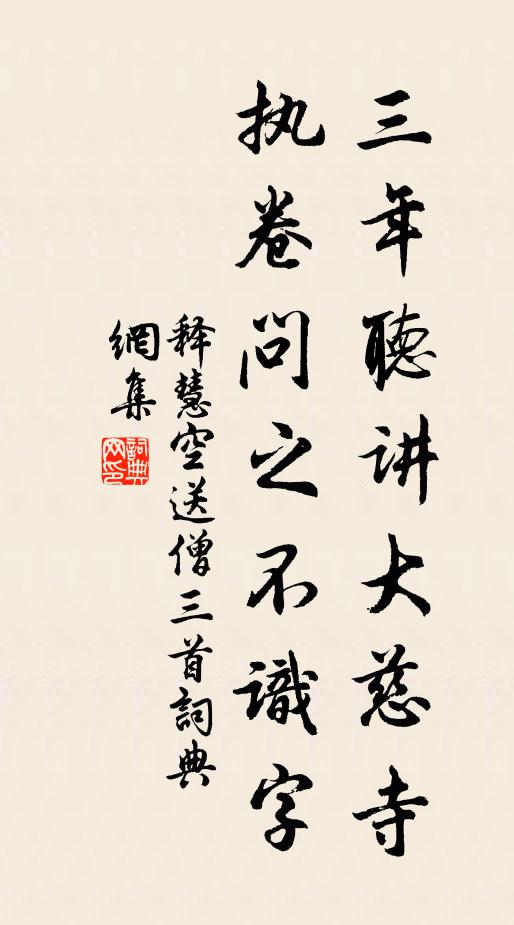 三年聽讲大慈寺
执卷问之不識字
释慧空送僧三首詞典
網集
詞典网印